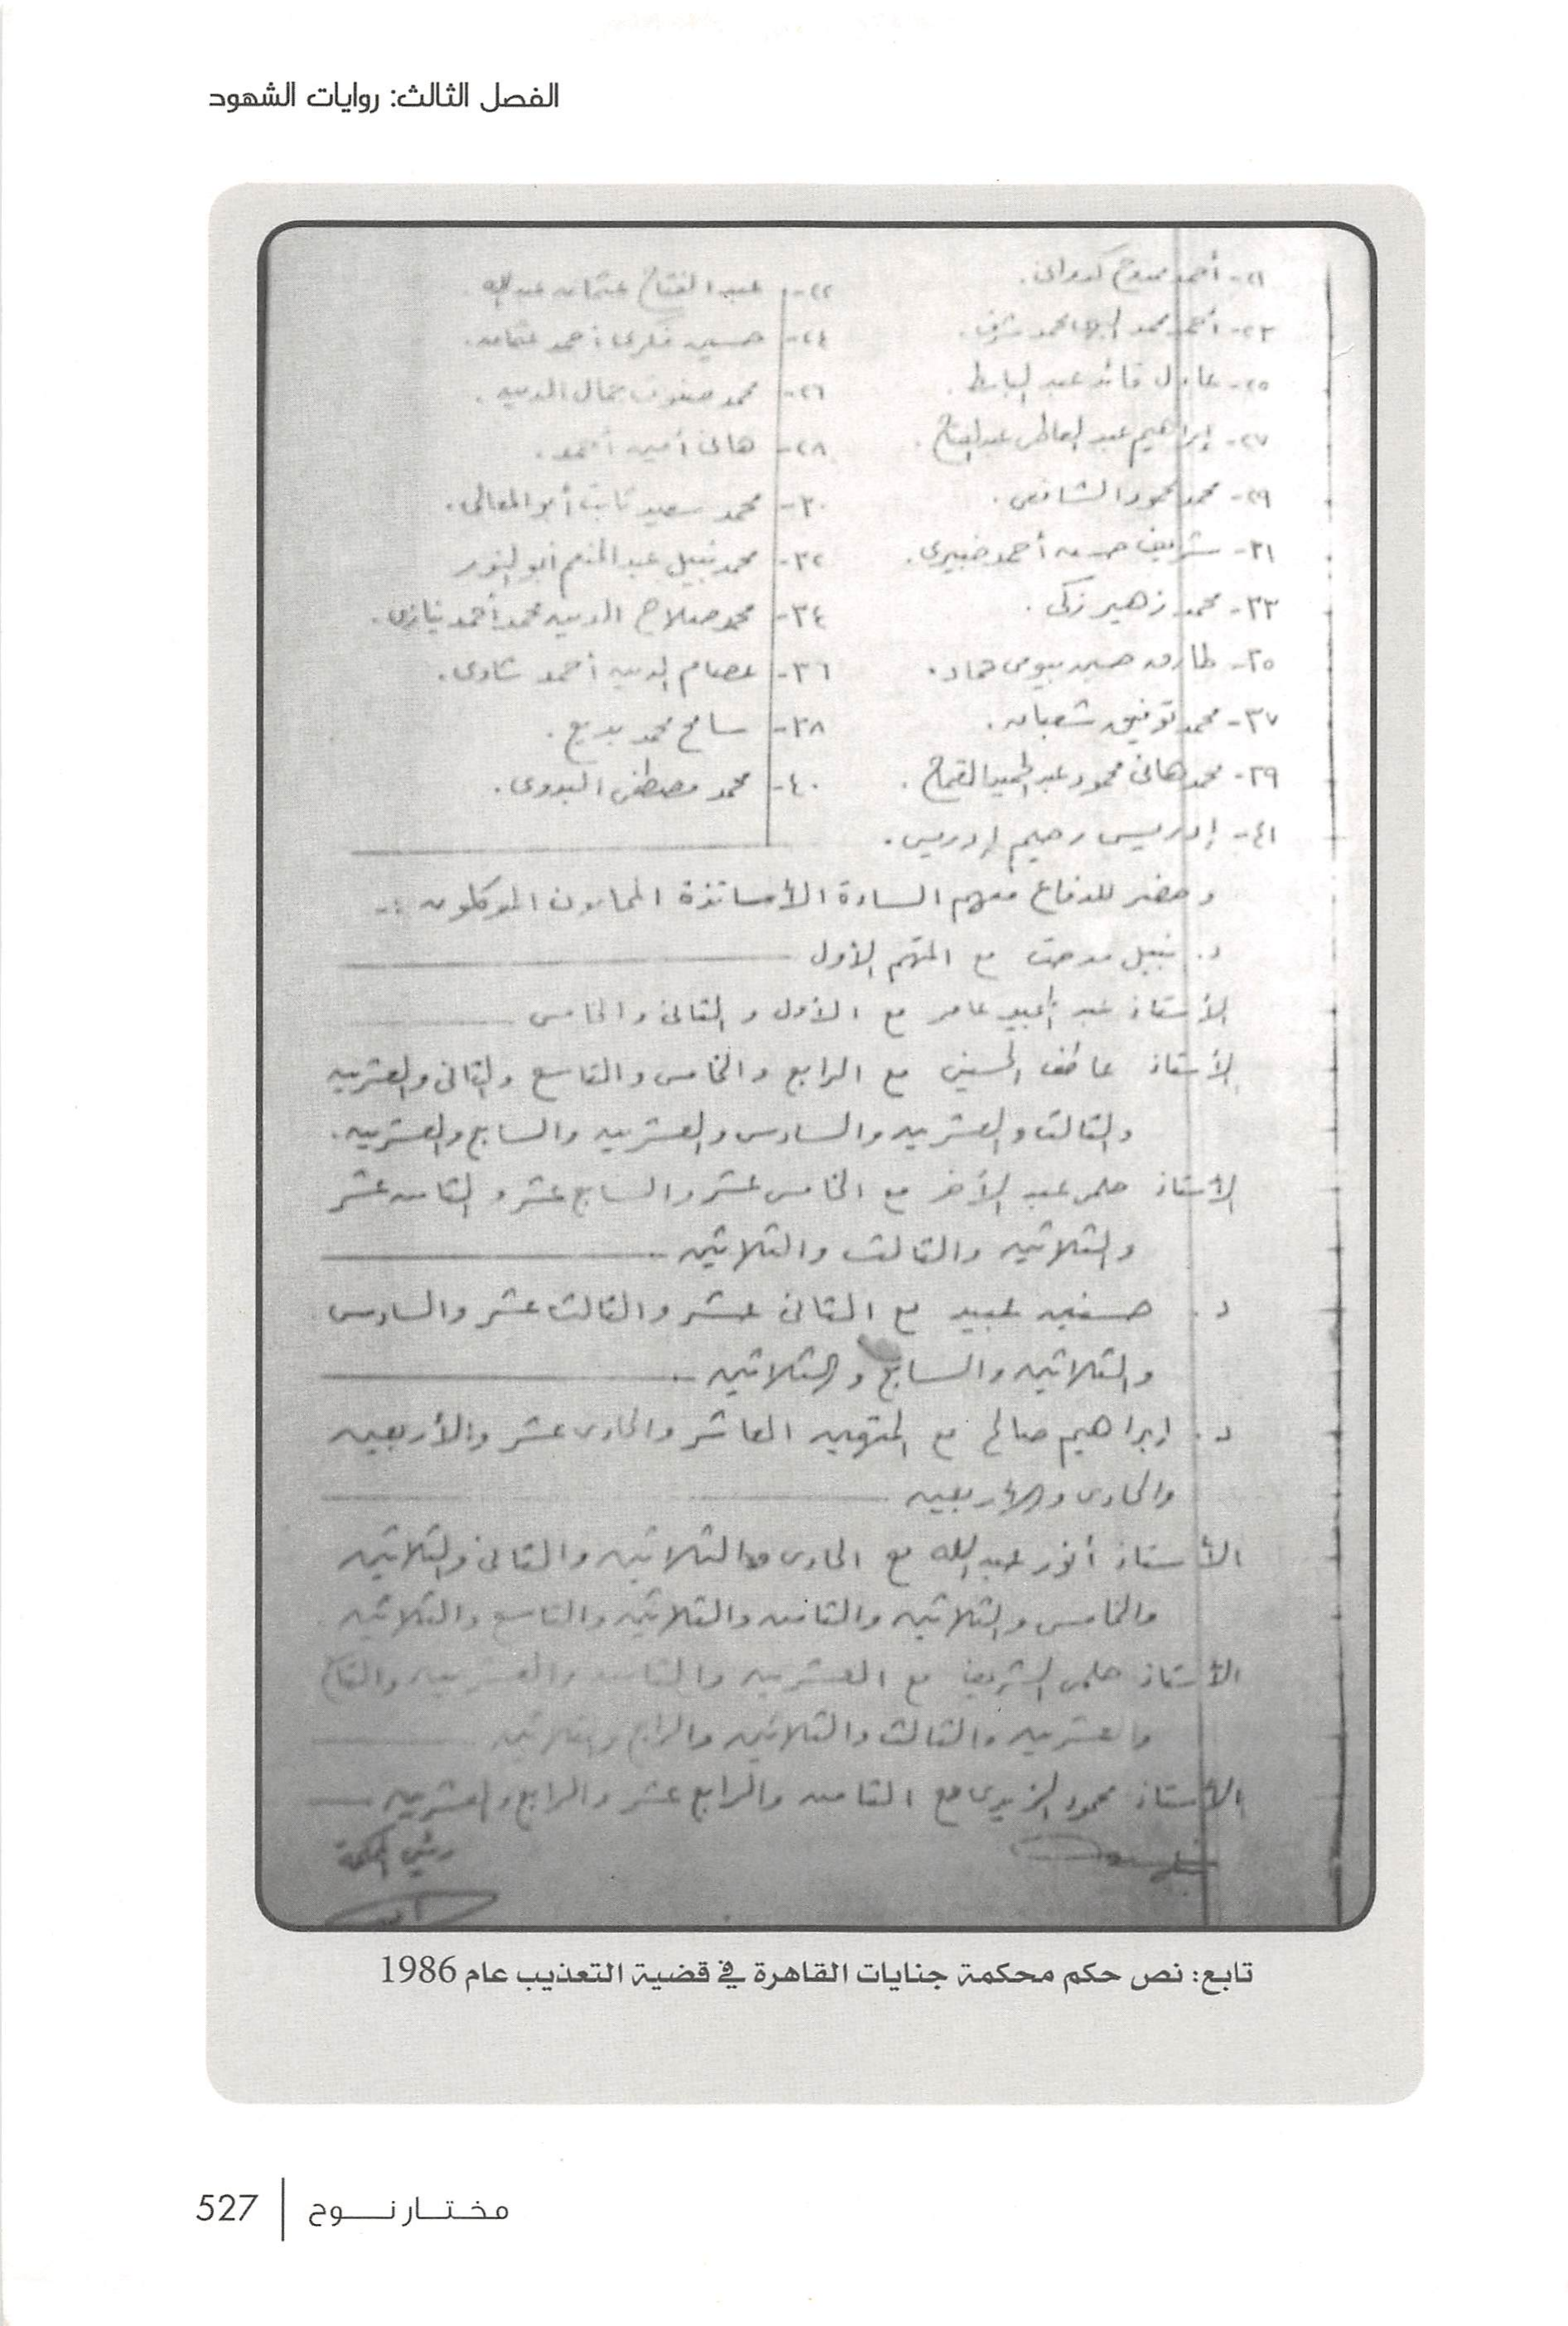 الفصل الثالث: روايات الشهود
٢١- أحمد ممدوح كدوانى.
٢٢- عبد الفتاح عثمان عبد الله.
٢٣- أحمد محمد محمد شرف.
٢٤- حسين فكرى أحمد عثمان.
٢٥- عادل قائد عبد الباسط.
٢٦- محمد صفوت جمال الدين.
٢٧- إبراهيم عبد العاطى عبد الفتاح.
٢٨- هانى أمين أحمد.
٢٩- محمد محمود الشافعى.
٣٠- محمد سعيد ثابت أبو المعالى.
٣١- شريف حسن أحمد
٣٢- محمد نبيل عبد المنعم أبو النور
٣٣- محمد زهير زكى.
٣٤- محمد صلاح الدين محمد أحمد نيازى.
٣٥- طارق حسين بيومى حماد.
٣٦- عصام الدين أحمد شادى.
٣٧- محمد توفيق شعبان.
٣٨- سامح محمد بديع.
٣٩- محمد هانى محمود عبد الحميد القماح.
٤٠- محمد مصطفى البدوى.
٤١- إدريس رحيم إدريس.
وحضر للدفاع معهم السادة الأساتذة المحامون الموكلون :-
د. نبيل مدحت مع المتهم الأول
الأستاذ عبد المجيد عامر مع الأول والثانى والخامس
الأستاذ عاطف الحسينى مع الرابع والخامس والتاسع والثانى والعشرين
والثالث والعشرين والسادس والعشرين والسابع والعشرين.
الأستاذ حلمى عبد الآخر مع الخامس عشر والسابع عشر والثامن عشر
والثلاثين والثالث والثلاثين
د. حسنين عبيد مع الثانى عشر والثالث عشر والسادس
والثلاثين والسابع والثلاثين
د. إبراهيم صالح مع المتهمين العاشر والحادى عشر والأربعين
والحادى والأربعين
الأستاذ أنور عبد الله مع الحادى والثلاثين والثانى والثلاثين
والخامس والثلاثين والثامن والثلاثين والتاسع والثلاثين
الأستاذ حلمى الشريف مع العشرين والثامن والعشرين والتاسع
والعشرين والثالث والثلاثين والرابع والثلاثين
الأستاذ محمود الزيدى مع الثامن والرابع عشر والرابع والعشرين
رئيس المحكمة
تابع: نص حكم محكمة جنايات القاهرة في قضية التعذيب عام 1986
مختار نوح | 527